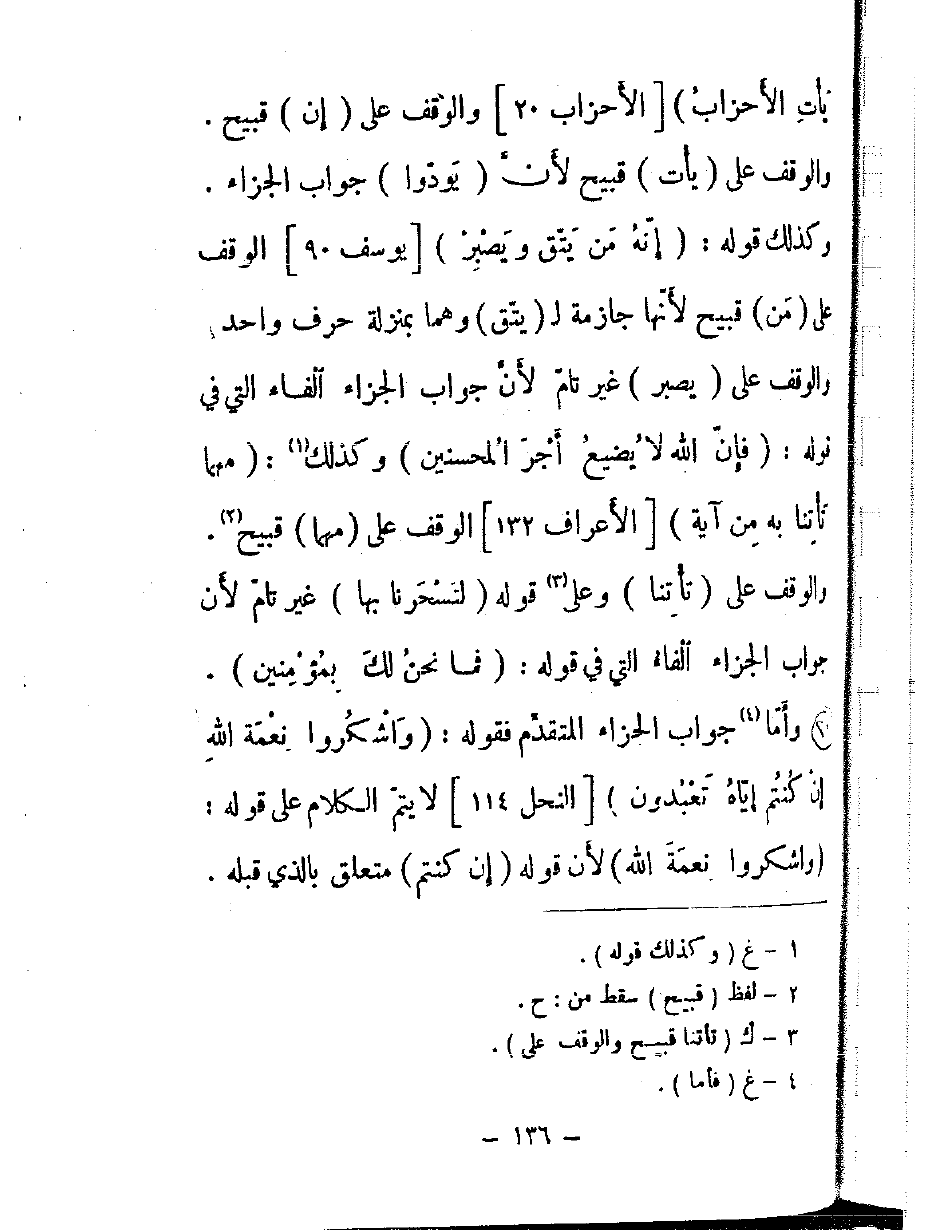 يَأتِ الأَحزابُ ) [ الأَحزاب ٢٠ ] والوقف على ( إِن ) قبيح .
والوقف على ( يأت ) قبيح لأَنَّ ( يَودّوا ) جواب الجزاء .
وكذلك قوله : ( إِنّهُ مَن يَتّق ويَصْبِرْ ) [ يوسف ٩٠ ] الوقف
على ( مَن ) قبيح لأَنّها جازمة لـ ( يتّق ) وهما بمنزلة حرف واحد .
والوقف على ( يصبر ) غير تامّ لأَنَّ جواب الجزاء ٱلفاء التي في
قوله : ( فإِنّ الله لا يُضيعُ أَجْرَ المحسنين ) وكذلك(١) : ( مهما
تأْتِنا به مِن آية ) [ الأَعراف ١٣٢ ] الوقف على ( مهما ) قبيح(٢) .
والوقف على ( تأْتِنا ) وعلى(٣) قوله ( لتَسْحَرنا بها ) غير تامّ لأَن
جواب الجزاء ٱلفاء التي في قوله : ( فما نحنُ لكَ بِمُؤْمِنين ) .
وأَمّا(٤) جواب الجزاء المتقدّم فقوله : ( وَٱشْكُروا نِعْمَة اللهِ
إِنْ كُنْتُم إِيّاهُ تَعْبُدون ) [ النحل ١١٤ ] لا يتمّ الكلام على قوله :
( واشكروا نِعمَةَ الله ) لأَن قوله ( إِن كنتم ) متعلق بالذي قبله .
١ – غ ( وكذلك قوله ) .
٢ – لفظ ( قبيح ) سقط من : ح .
٣ – ك ( تأتنا قبيح والوقف على ) .
٤ – غ ( فأما ) .
– ١٣٦ –